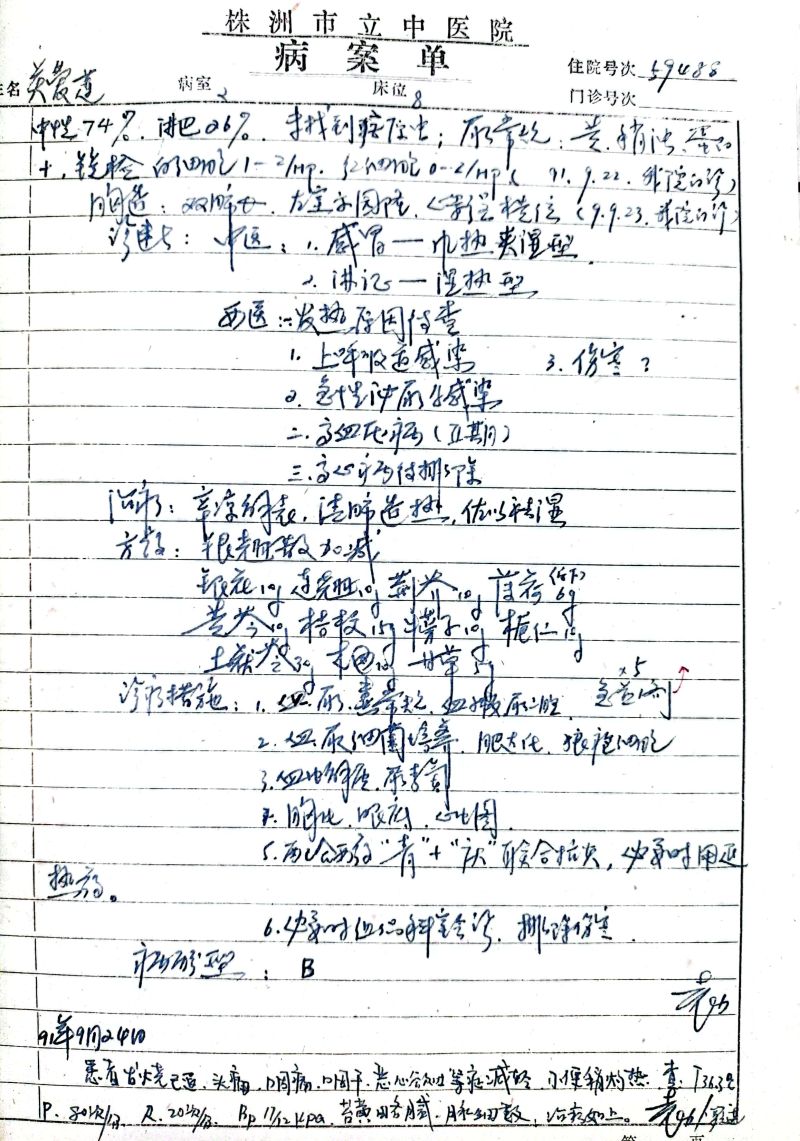 株洲市立中医院
病案单
住院号次 59488
姓名 病室 2 床位 8 门诊号次
中性74%、淋巴26%、未找到疟原虫；尿常规：黄、稍浊、蛋白
+、镜检 白细胞1-2/HP、红细胞0-2/HP（91.9.22.我院门诊）
胸透：双肺 左室 圆隆，心 横位（9.9.23.我院门诊）
诊断：中医：1.感冒—风热夹湿型
2.淋证—湿热型
西医：一发热原因待查
1.上呼吸道感染 3.伤寒？
2.急性泌尿系感染
二.高血压病（ 期）
三.高心病待排除
治疗：辛凉解表，清肺透热，佐以祛湿
方药：银翘散加减
银花10g 连翘10g 荆芥10g 薄荷6g（后下）
黄芩10g 桔梗15g 牛蒡子10g 栀仁10g
土茯苓30g 甘草5g
×5
诊疗措施：1.血、尿、粪常规，血 尿
2.血尿细菌培养、肥大氏、狼疮细胞
3. 血 尿
4.胸片、眼底、心电图
5.配合西药“青”+“庆”联合抗炎，必要时用退
热药。
6.必要时 科室会诊，排除伤寒
病历分型：B
91年9月24日
患者发烧已退，头痛、咽痛、口干、恶心 等症减轻，小便稍灼热 查：T36.5℃
P.80次/分、R.20次/分、Bp 17/12Kpa，苔黄 腻，脉细数，治疗如上。
第 页